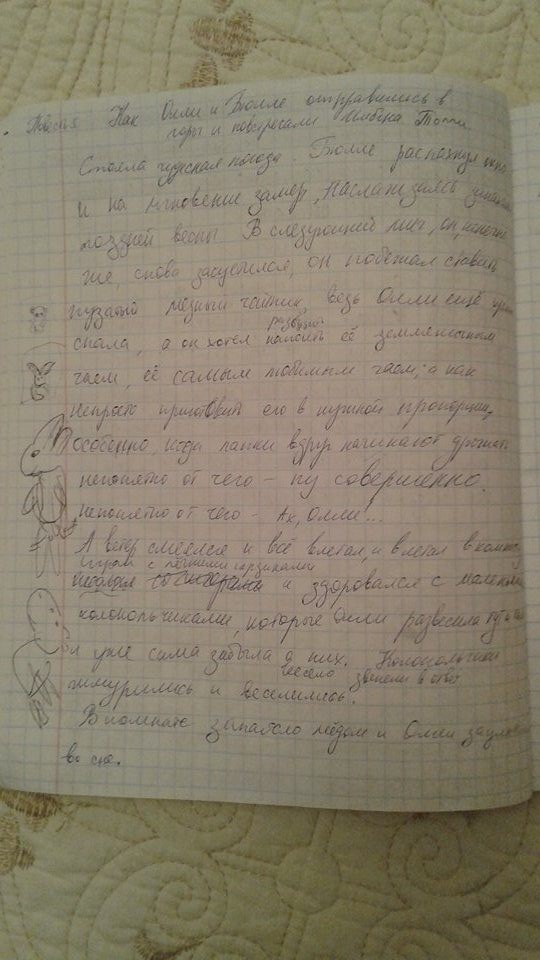 Как Олли и Болле отправились в
горы и повстречали
Стояла чудесная погода. Болле распахнул окно
и на мгновение замер, наслаждаясь
поздней весны. В следующий миг, он, конечно
же, снова засуетился, он побежал ставить
пузатый медный чайник, ведь Олли ещё
спала, а он хотел напоить её земляничным
разбудить
чаем, её самым любимым чаем; а как
непросто приготовить его в нужной пропорции,
особенно, когда лапки вдруг начинают дрожать
непонятно от чего - ну совершенно
непонятно от чего - Ах, Олли...
А ветер смеялся и всё влетал, и влетал в комнату
играл с летними гардинами
и здоровался с маленькими
колокольчиками, которые Олли развесила тут и там
и уже сама забыла о них. Колокольчики
жмурились и веселились.
весело звенели в ответ
В комнате запахло мёдом и Олли
во сне.